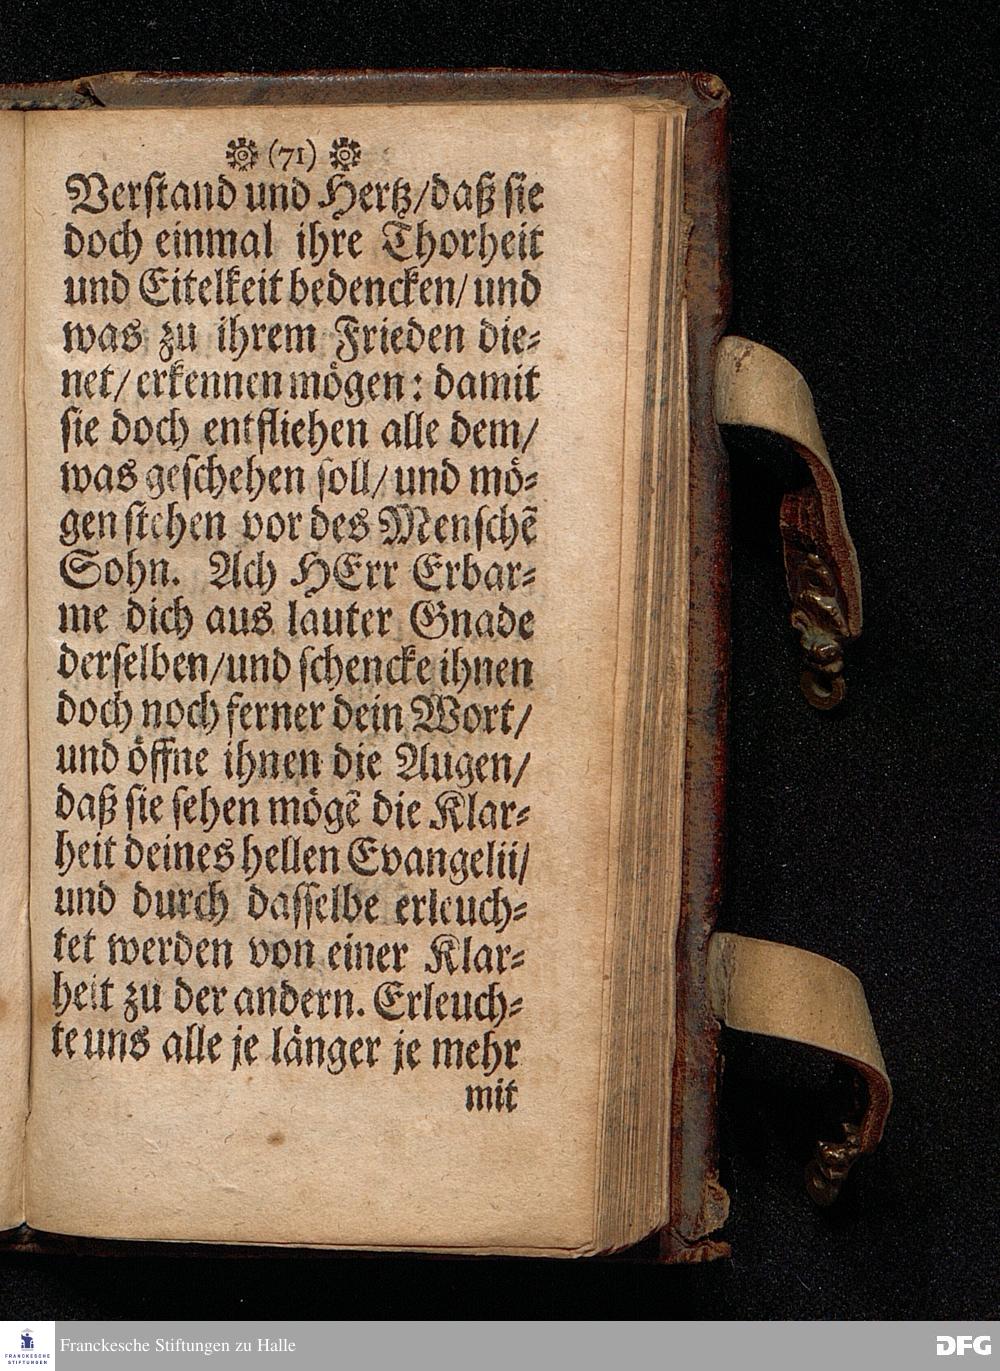 (71)
Verstand und Hertz/daß sie
doch einmal ihre Thorheit
und Eitelkeit bedencken/ und
was zu ihrem Frieden die⸗
net/ erkennen mögen: damit
sie doch entfliehen alle dem/
was geschehen soll/ und mö⸗
gen stehen vor des Menschẽ
Sohn. Ach HErr Erbar⸗
me dich aus lauter Gnade
derselben/und schencke ihnen
doch noch ferner dein Wort/
und öffne ihnen die Augen/
daß sie sehen mögẽ die Klar⸗
heit deines hellen Evangelii/
und durch dasselbe erleuch⸗
tet werden von einer Klar⸗
heit zu der andern. Erleuch⸗
te uns alle je länger je mehr
mit
FRANCKESCHE
STIFTUNGEN
Franckesche Stiftungen zu Halle
DFG